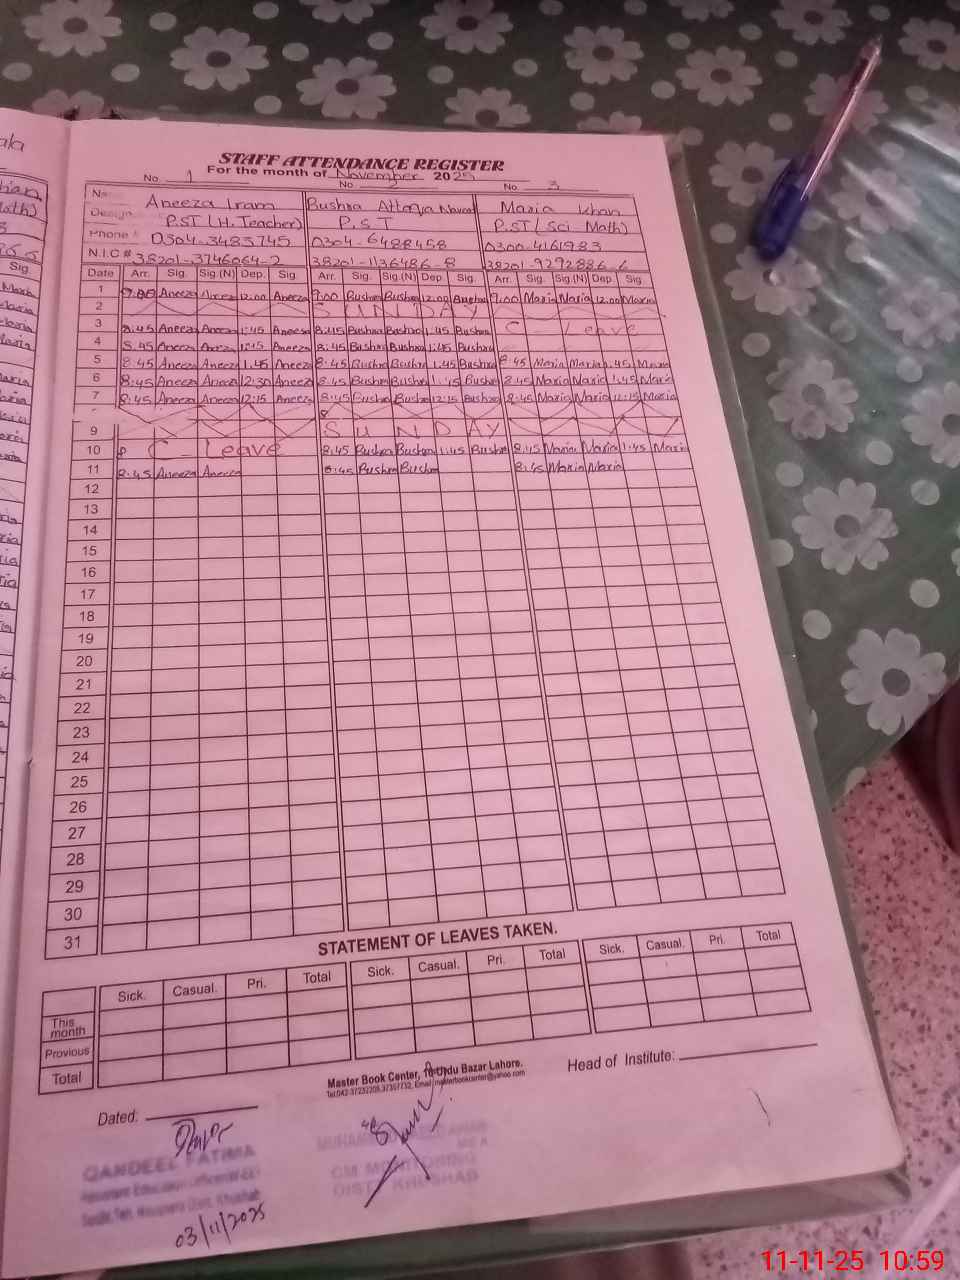 ala
STAFF ATTENDANCE REGISTER
For the month of November 2025
No 1 No 2 No 3
Aneeza Iram Bushra Attaya Maria Khan
Design P.ST (H. Teacher) P.S.T P.ST (Sci Math)
Phone # 0304-3483745 0304-6488458 0300-4161983
N.I.C # 38201-3746064-2 38201-1136486-8 38201-9292886-6
Date Arr. Sig. Sig (N) Dep. Sig. Arr. Sig. Sig.(N) Dep. Sig. Arr. Sig. Sig.(N) Dep. Sig.
1 9:00 Aneeza Aneeza 12:00 Aneeza 9:00 Bushra Bushra 12:00 Bushra 9:00 Maria Maria 12:00 Maria
2 SUNDAY
3 8:45 Aneeza Aneeza 1:45 Aneeza 8:45 Bushra Bushra 1:45 Bushra C - Leave
4 8:45 Aneeza Aneeza Aneeza 8:45 Bushra Bushra 1:45 Bushra
5 8:45 Aneeza Aneeza 1:45 Aneeza 8:45 Bushra Bushra 1:45 Bushra 8:45 Maria Maria 1:45 Maria
6 8:45 Aneeza Aneeza 12:30 Aneeza 8:45 Bushra Bushra 1:45 Bushra 8:45 Maria Maria 1:45 Maria
7 8:45 Aneeza Aneeza 12:15 Aneeza 8:45 Bushra Bushra 12:15 Bushra 8:45 Maria Maria 12:15 Maria
8
9 SUNDAY
10 C - Leave 8:45 Bushra Bushra 1:45 Bushra 8:45 Maria Maria 1:45 Maria
11 8:45 Aneeza Aneeza 8:45 Bushra Bushra 8:45 Maria Maria
12
13
14
15
16
17
18
19
20
21
22
23
24
25
26
27
28
29
30
31
STATEMENT OF LEAVES TAKEN.
Sick. Casual. Pri. Total Sick. Casual. Pri. Total Sick. Casual. Pri. Total
This month
Previous
Total
Master Book Center, Urdu Bazar Lahore.
Head of Institute:
Dated:
QANDEEL FATIMA
03/11/2025
MONITORING
DISTT KHUSHAB
11-11-25 10:59